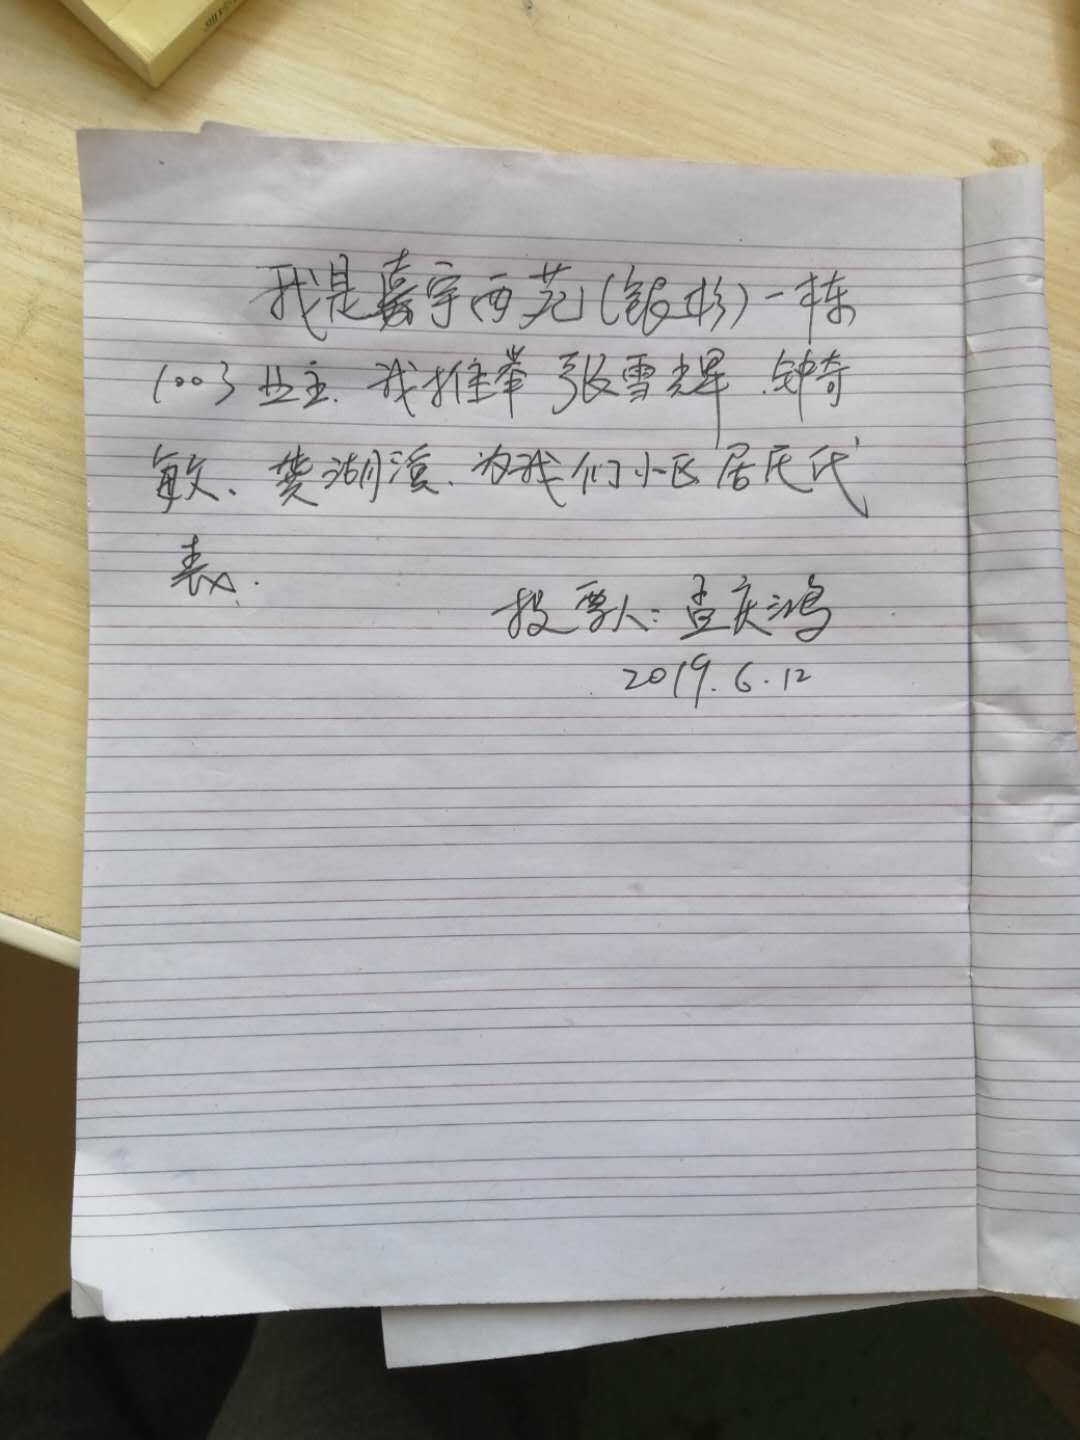 我是嘉宇西苑(银杉)一栋
1003业主.我推举张雪辉.钟奇
敏、龚湖滨.为我们小区居民代
表.
投票人:孟庆鸿
2019.6.12